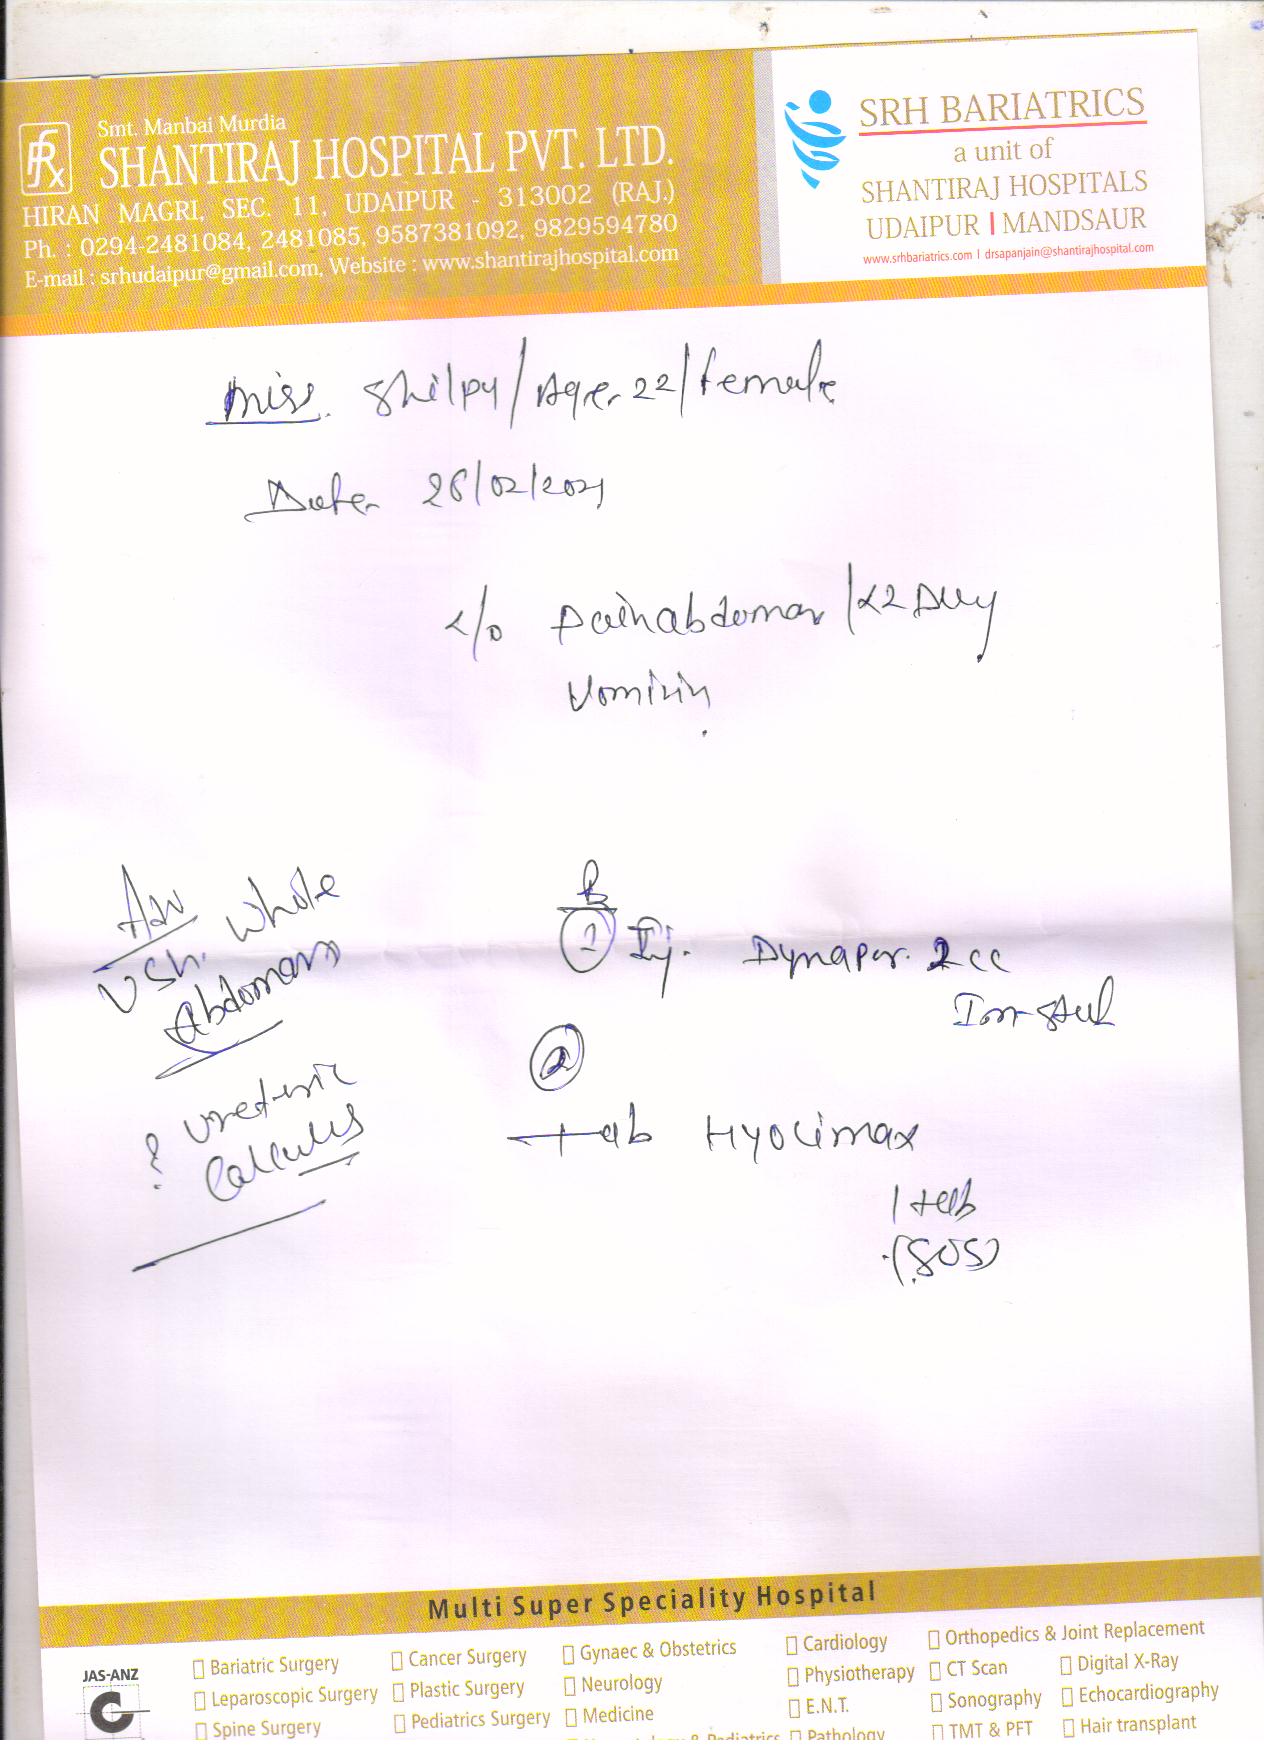 Smt. Manbai Murdia
SHANTIRAJ HOSPITAL PVT. LTD.
HIRAN MAGRI, SEC. 11, UDAIPUR - 313002 (RAJ.)
Ph. : 0294-2481084, 2481085, 9587381092, 9829594780
E-mail : srhudaipur@gmail.com, Website : www.shantirajhospital.com
SRH BARIATRICS
a unit of
SHANTIRAJ HOSPITALS
UDAIPUR | MANDSAUR
www.srhbariatrics.com | drsapanjain@shantirajhospital.com
Miss. Shilpy/Age. 22/female
Date 26/02/2021
c/o Pain abdoman / x2 Day
Vomitin
Adv
USG. Whole
Abdomans
? ureteric
Calculus
Rx
1 Inj. Dynapar. 2cc
Im-stat
2
tab Hyocimax
1 tab
(SOS)
Multi Super Speciality Hospital
JAS-ANZ
Bariatric Surgery Cancer Surgery Gynaec & Obstetrics Cardiology Orthopedics & Joint Replacement
Leparoscopic Surgery Plastic Surgery Neurology Physiotherapy CT Scan Digital X-Ray
Spine Surgery Pediatrics Surgery Medicine E.N.T. Sonography Echocardiography
Pathology TMT & PFT Hair transplant